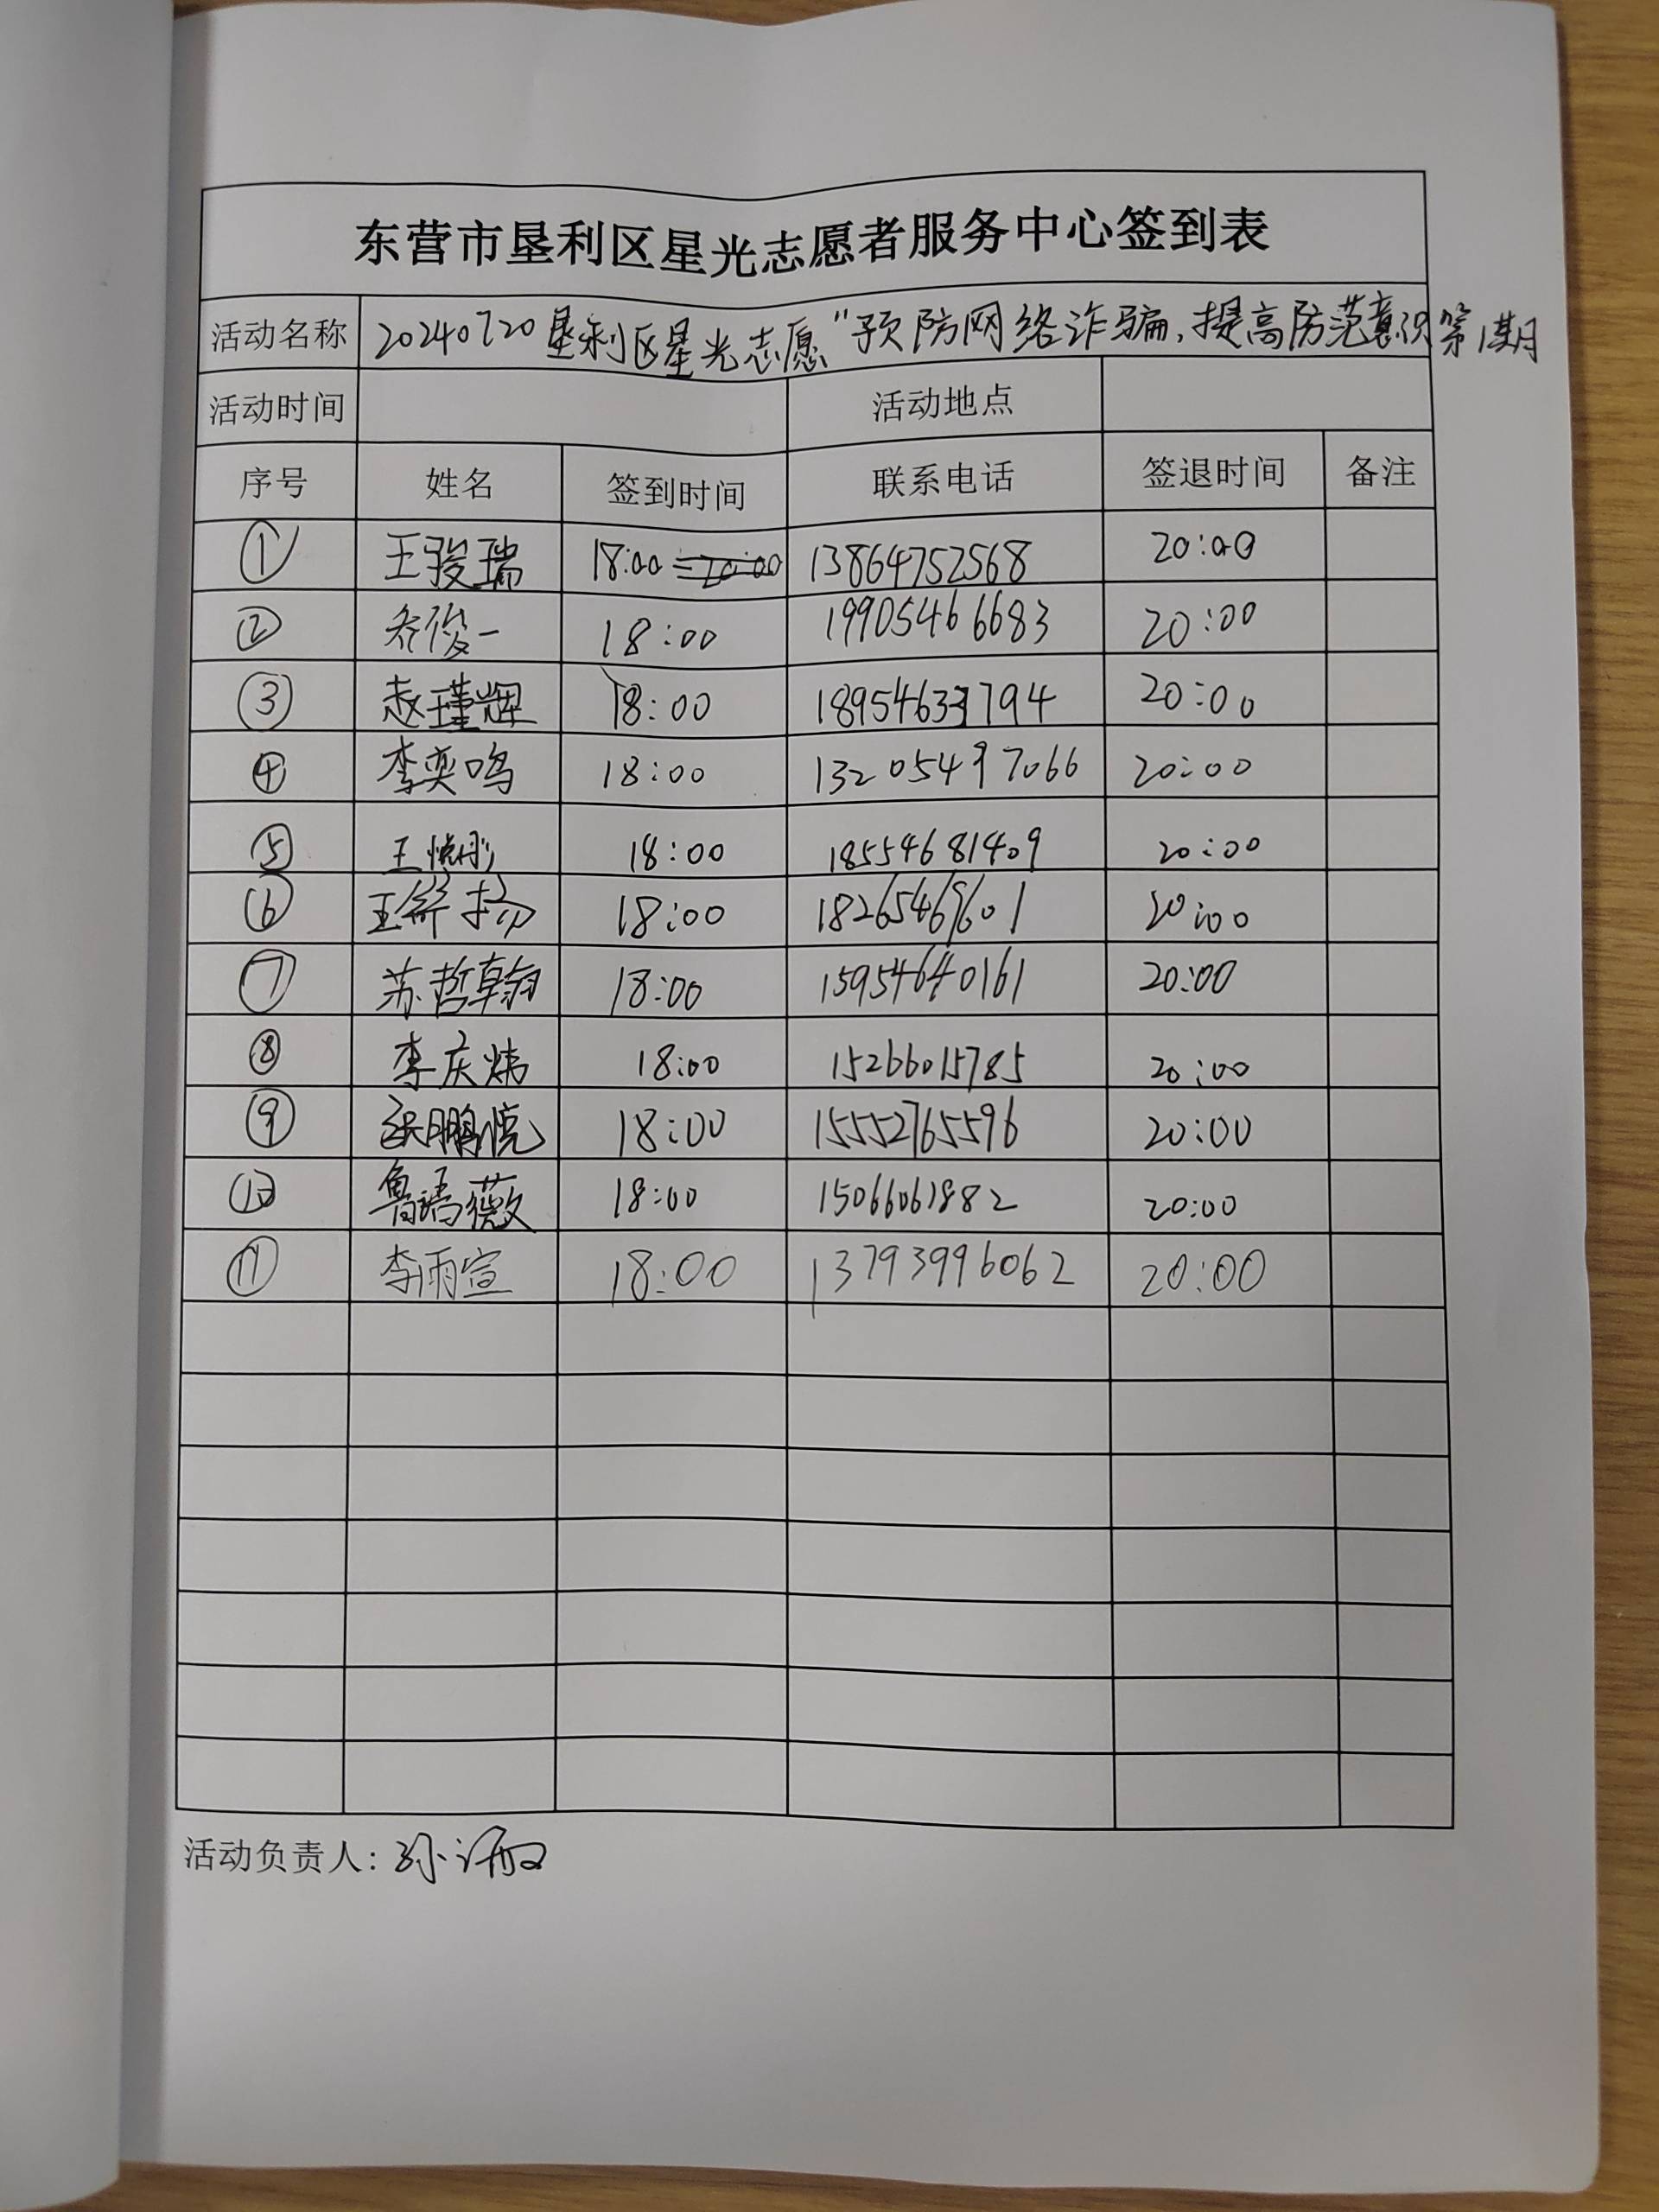 东营市垦利区星光志愿者服务中心签到表
活动名称 20240720垦利区星光志愿"预防网络诈骗,提高防范意识第1期
活动时间 活动地点
序号 姓名 签到时间 联系电话 签退时间 备注
① 王骏瑞 18:00 13864752568 20:00
② 乔俊一 18:00 19905466683 20:00
③ 赵瑾辉 18:00 18954633794 20:00
④ 李奕鸣 18:00 13205497066 20:00
⑤ 王悦彤 18:00 18554681409 20:00
⑥ 王舒扬 18:00 18265469601 20:00
⑦ 苏哲翰 18:00 15954640161 20:00
⑧ 李庆炜 18:00 15266015785 20:00
⑨ 张鹏悦 18:00 15552765596 20:00
⑩ 鲁靖薇 18:00 15066061882 20:00
⑪ 李雨宣 18:00 13793996062 20:00
活动负责人: 孙